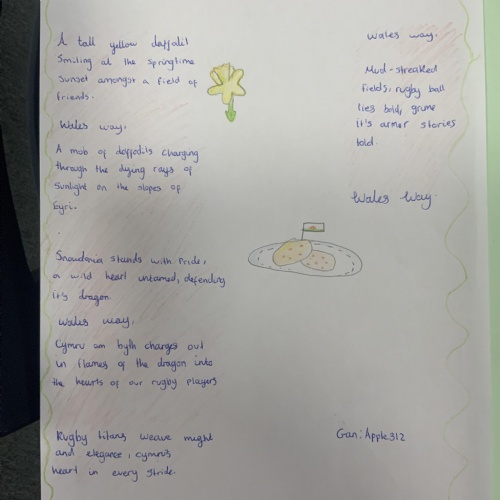 A tall yellow daffodil
Smiling at the springtime
Sunset amongst a field of
friends.
Wales way.
A mob of daffodils charging
through the dying rays of
Sunlight on the slopes of
Eyri.
Snowdonia stands with pride,
a wild heart untamed, defending
it's dragon.
Wales way.
Cymru am byth charges out
in flames of the dragon into
the hearts of our rugby players
Rugby titans weave might
and elegance, cymrus
heart in every stride.
Wales way.
Mud-streaked
fields, rugby ball
lies bold, grime
it's armor stories
told.
Wales Way.
Gan: Apple312